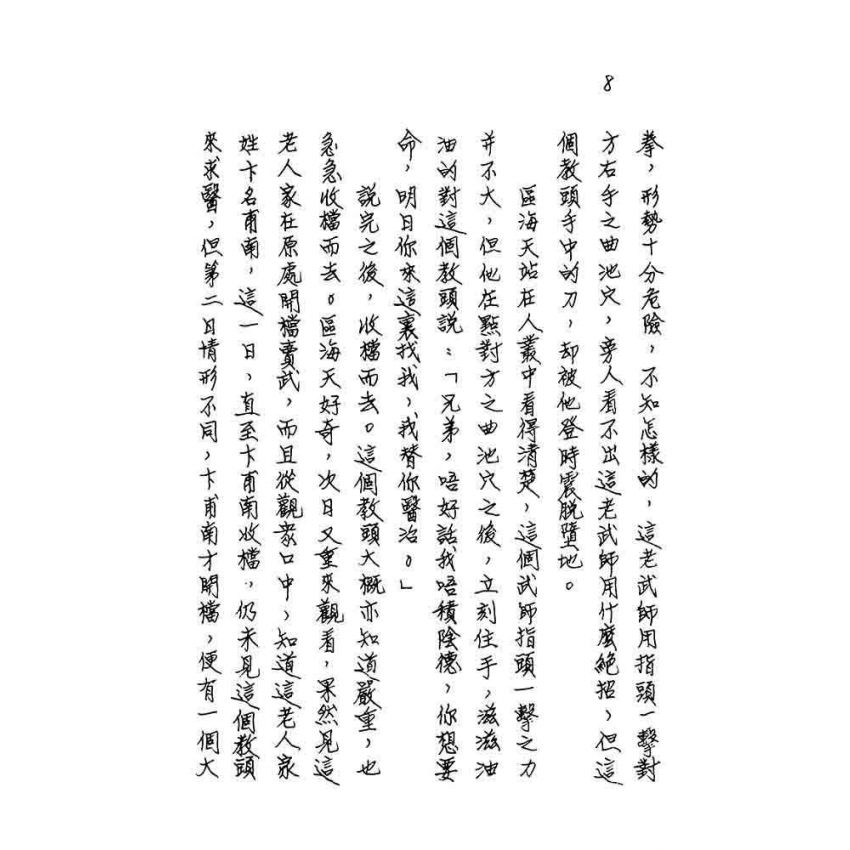 8
拳，形勢十分危險，不知怎樣的，這老武師用指頭一擊對
方右手之曲池穴，旁人看不出這老武師用什麼絕招，但這
個教頭手中的刀，却被他登時震脫墮地。
區海天站在人叢中看得清楚，這個武師指頭一擊之力
并不大，但他在點對方之曲池穴之後，立刻住手，滋滋油
油的對這個教頭説：「兄弟，唔好話我唔積陰德，你想要
命，明日你來這裏找我，我替你醫治。」
説完之後，收檔而去。這個教頭大概亦知道嚴重，也
急急收檔而去。區海天好奇，次日又重來觀看，果然見這
老人家在原處開檔賣武，而且從觀衆口中，知道這老人家
姓卞名甫南，這一日，直至卞甫南收檔，仍未見這個教頭
來求醫，但第二日情形不同，卞甫南才開檔，便有一個大